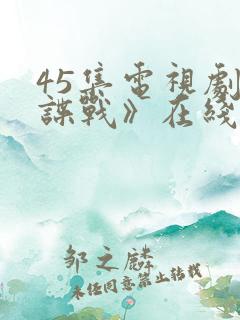 45集電視劇
諜戰》在綫
邹之麟
未任同意禁止转载